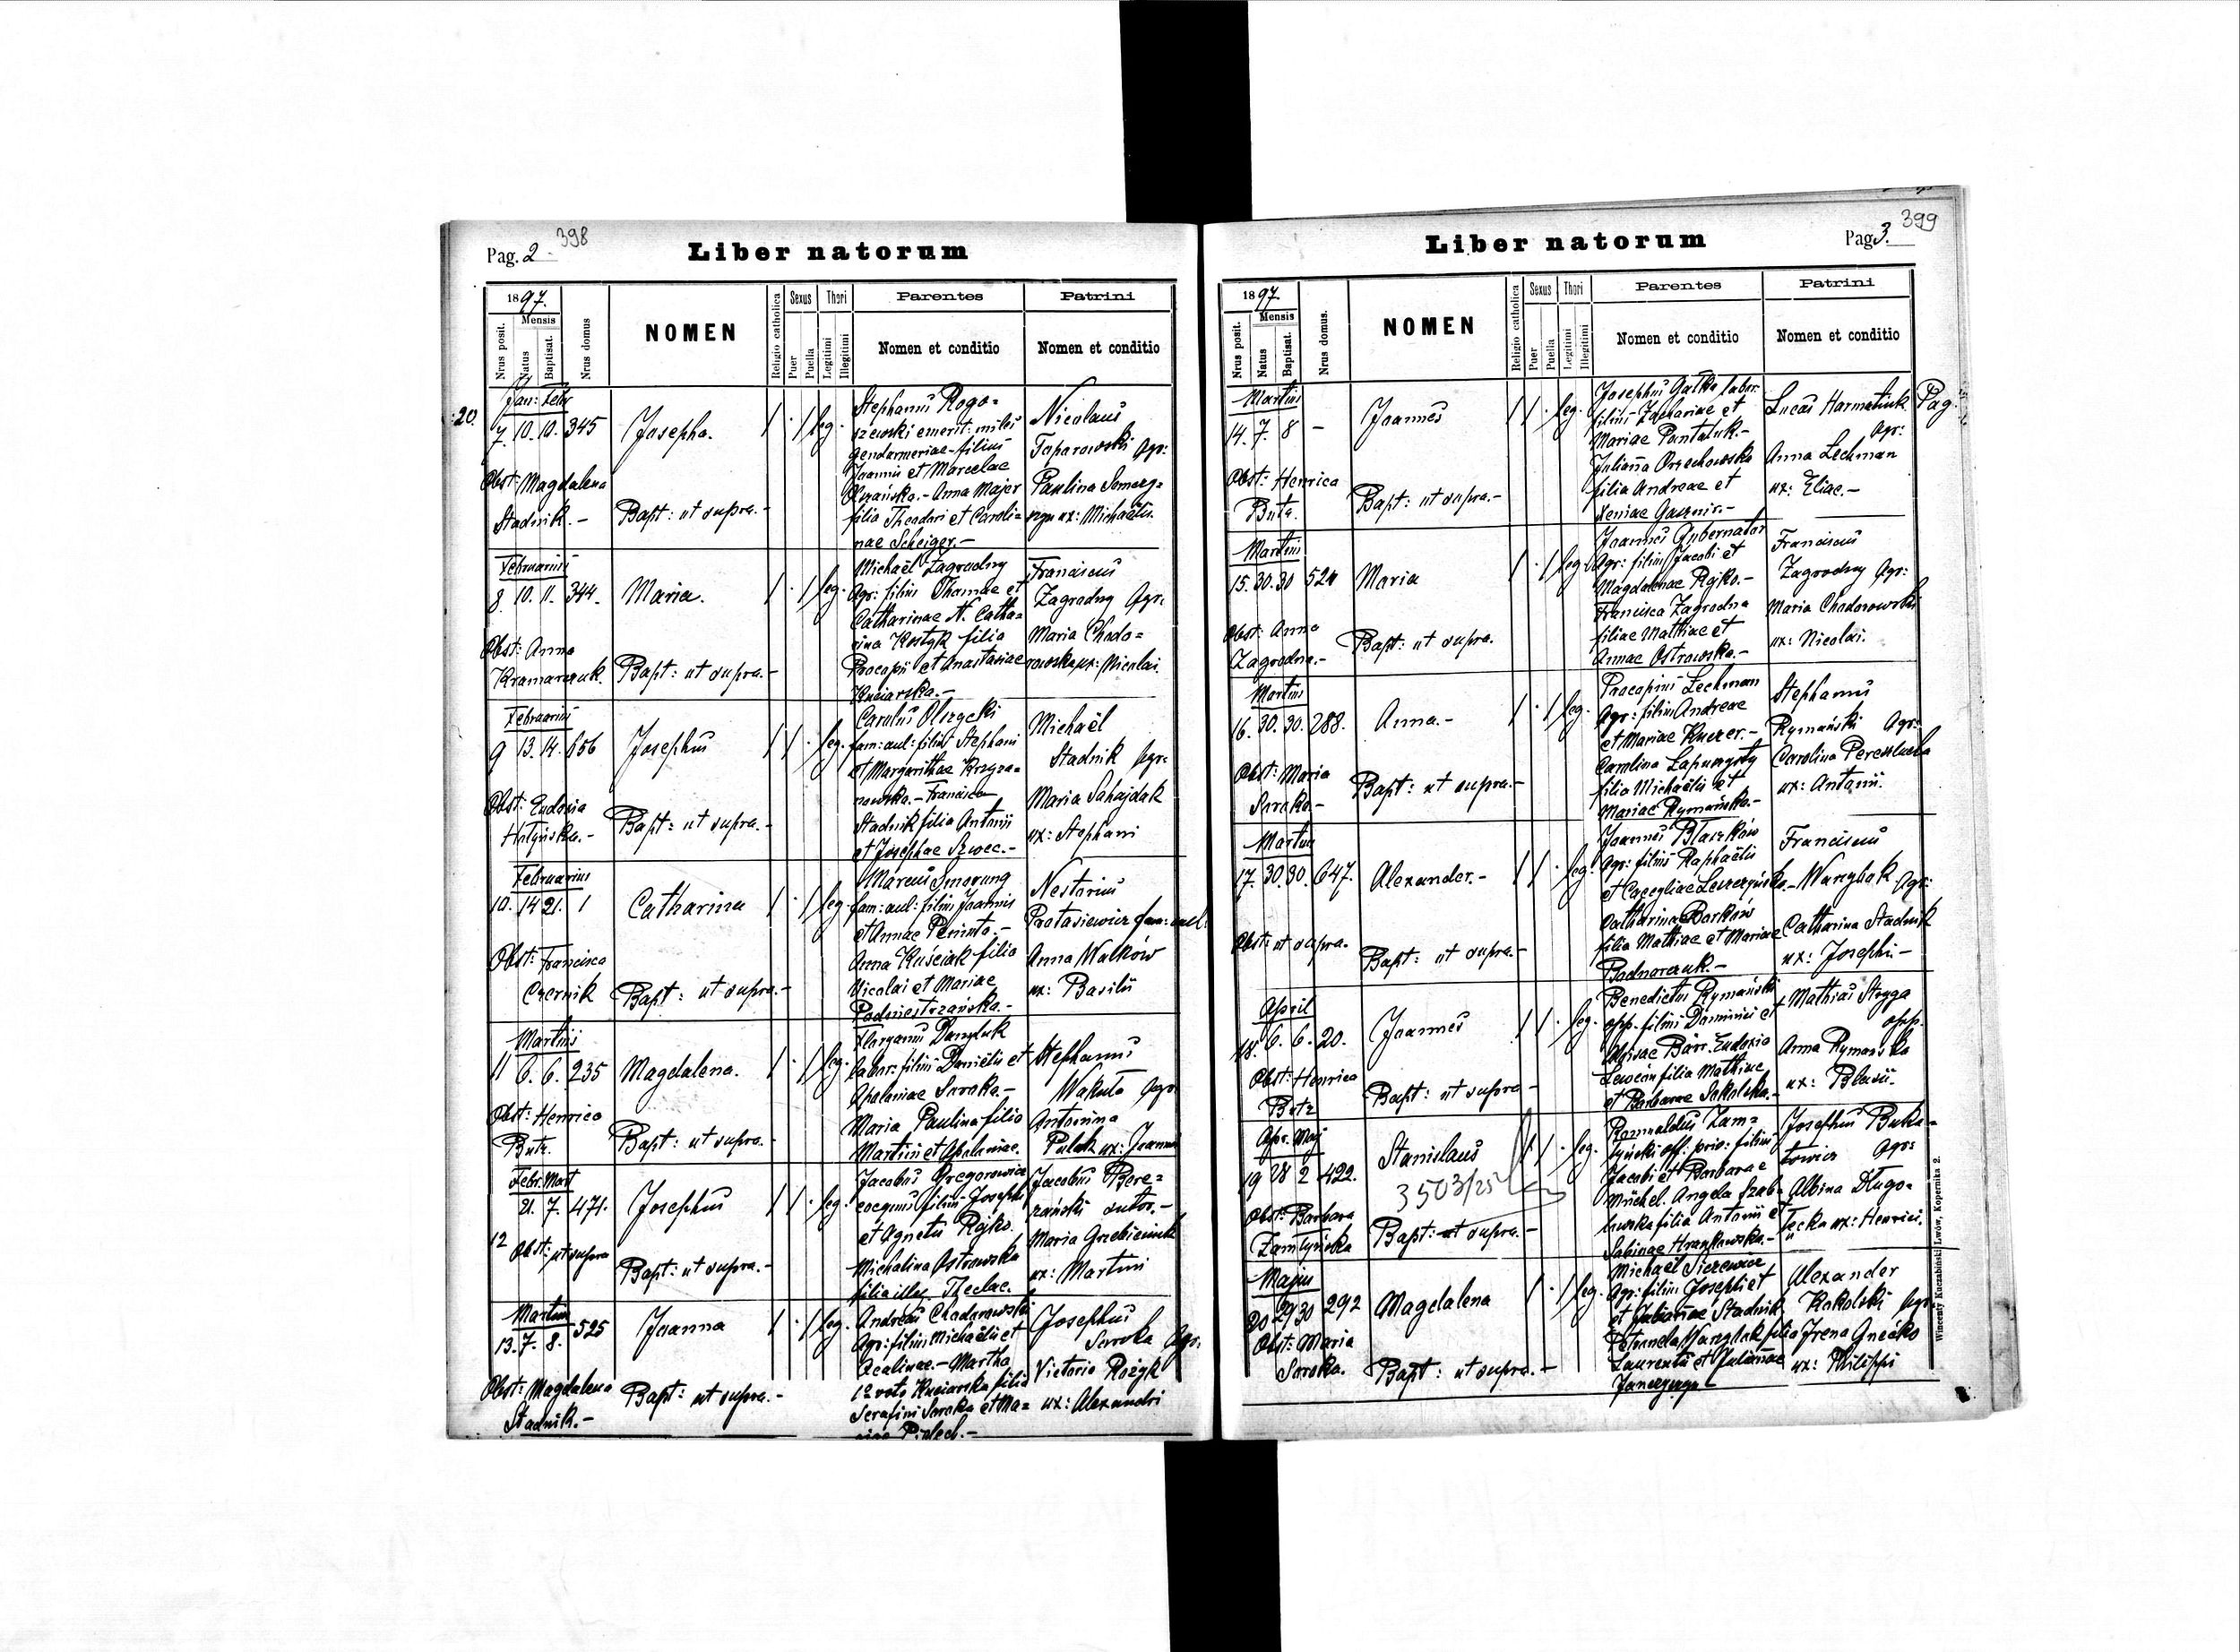 Pag. 2 398
Liber natorum
1897.
Mensis
Nrus posit.
Natus
Baptisat.
Nrus domus
NOMEN
Religio catholica
Sexus
Puer
Puella
Thori
Legitimi
Illegitimi
Parentes
Nomen et conditio
Patrini
Nomen et conditio
20.
Jan: Febr
7. 10. 10. 345 Josepha. / . / leg.
Obst: Magdalena
Stadnik.-
Bapt: ut supra.-
Stephanus Rogo=
szewski emerit: miles
gendarmeriae-filius
Joannis et Marcelae
Olszańska.- Anna Majer
filia Theodori et Caroli=
nae Scheiger.-
Nicolaus
Taparowski Agr:
Paulina
ux: Michaëlis.
Februarius
8. 10. 11. 344. Maria. / . / leg.
Obst: Anna
Kramarczuk.
Bapt: ut supra.-
Michaël Zagrodny
Agr: filius Thomae et
Catharinae N. Catha=
rina Kostyk filia
Procopii et Anastasiae
Kuciarska.-
Franciscus
Zagrodny Agr:
Maria Chodo=
rowska ux: Nicolai.
Februarius
9 13. 14. 656 Josephus / / . leg.
Obst: Eudoxia
Hołyńska.-
Bapt: ut supra.-
Carolus Olszycki
fam: aul: filius Stephani
et Margarithae Krzyża=
nowska.- Francisca
Stadnik filia Antonii
et Josephae Szwec.-
Michaël
Stadnik Agr:
Maria Sahajdak
ux: Stephani
Februarius
10. 14 21. 1 Catharina / . / leg.
Obst: Francisca
Czernik
Bapt: ut supra.-
Marcus Smorung
fam: aul: filius Joannis
et Annae
Anna Kuściak filia
Nicolai et Mariae
Podniestrzańska.-
Nestorius
Protasiewicz fam: aul:
Anna Walków
ux: Basilii
Martius
11 6. 6. 235 Magdalena. / . / leg.
Obst: Henrica
Butz.
Bapt: ut supra.-
Floryanus Danyluk
labor: filius Daniëlis et
Apoloniae Soroka.-
Maria Paulina filia
Martini et Apoloniae.
Stephanus
Wakuła Agr.
Antonina
ux: Joannis
Febr. Mart
12 21. 7. 471. Josephus / / . leg.
Obst: ut supra
Bapt: ut supra.-
Jacobus Gregorowicz
filius Josephi
et Agnetis Rojko.
Michalina Ostrowska
filia illeg. Theclae.
Jacobus Bere=
żański sutor.-
Maria
ux: Martini
Martius
13. 7. 8. 525 Joanna / . / leg.
Obst: Magdalena
Stadnik.-
Bapt: ut supra.-
Andreas Chodorowski
Agr: filius Michaëlis et
Acalinae.- Martha
1º voto Kuciarska filia
Serafini Soroka et Ma=
Josephus
Soroka Agr:
Victoria Rożyk
ux: Alexandri
Liber natorum
Pag 3. 399
1897
Mensis
Nrus posit.
Natus
Baptisat.
Nrus domus.
NOMEN
Religio catholica
Sexus
Puer
Puella
Thori
Legitimi
Illegitimi
Parentes
Nomen et conditio
Patrini
Nomen et conditio
Pag.
Martius
14. 7. 8 - Joannes / / . leg.
Obst: Henrica
Butz.
Bapt: ut supra.-
Josephus Gałka labor:
filius Zachariae et
Mariae Pantaluk.-
Julianna Orzechowska
filia Andreae et
Xeniae
Lucas Harmatiuk
Agr:
Anna Lechman
ux: Eliae.-
Martius
15. 30. 30 524 Maria / . / leg.
Obst: Anna
Zagrodna.-
Bapt: ut supra.
Joannes Gubernator
Agr: filius Jacobi et
Magdalenae Rojko.-
Francisca Zagrodna
filiae Mathiae et
Annae Ostrowska.-
Franciscus
Zagrodny Agr:
Maria Chodorowski
ux: Nicolai.
Martius
16. 30. 30. 288. Anna.- / . / leg.
Obst: Maria
Soroka.-
Bapt: ut supra.-
Procopius Lechman
Agr: filius Andreae
et Mariae Kuczer.-
Carolina
filia Michaëlis et
Mariae Rymańska.-
Stephanus
Rymański Agr:
Carolina
ux: Antonii.
Martius
17. 30. 30. 647. Alexander.- / / . leg.
Obst: ut supra.
Bapt: ut supra.-
Joannes Błaszków
Agr: filius Raphaëlis
et Caeciliae Leszczyńska.-
Catharina Borków
filia Mathiae et Mariae
Bodnarczuk.-
Franciscus
Warzybok Agr:
Catharina Stadnik
ux: Josephi.-
April
18. 6. 6. 20. Joannes / / . leg.
Obst: Henrica
Butz
Bapt: ut supra.-
Benedictus Rymański
opp. filius Dominici et
Aloisae Bärr. Eudoxia
filia Mathiae
et Barbarae Sokolska.-
Mathias Stryga
opp.
Anna Rymańska
ux: Blasii.
Apr. Maj
19 28 2 422. Stanislaus / / . leg.
3503/25
Obst: Barbara
Zamłyńska
Bapt: ut supra.-
Romualdus Zam=
łyński off: priv: filius
Jacobi et Barbarae
Müchel. Angela Szab=
łowska filia Antonii et
Sabinae Hrankowska.-
Josephus Buka=
towicz Agr:
Albina Długo=
łęcka ux: Henrici.
Majus
20 29 30 292 Magdalena / . / leg.
Obst: Maria
Soroka.
Bapt: ut supra.-
Michaël Siczewicz
Agr: filius Josephi et
et Juliannae Stadnik
Petronela Warzybok filia
Laurentii et Juliannae
Alexander
Kokolski Agr:
Irena Gnećko
ux: Philippi
Wincenty Kuczabiński Lwów, Kopernika 2.